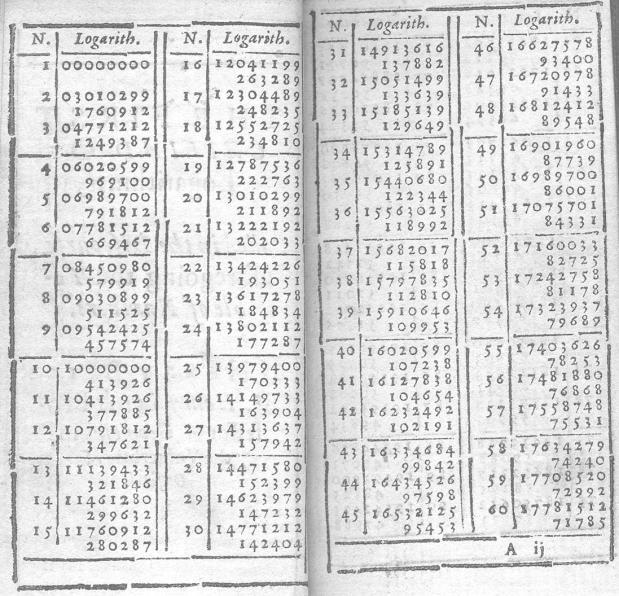 N. Logarith. N. Logarith.
1 00000000 16 12041199
263289
2 03010299 17 12304489
1760912 248235
3 04771212 18 12552725
1249387 234810
4 06020599 19 12787536
969100 222763
5 06989700 20 13010299
791812 211892
6 07781512 21 13222192
669467 202033
7 08450980 22 13424226
579919 193051
8 09030899 23 13617278
511525 184834
9 09542425 24 13802112
457574 177287
10 10000000 25 13979400
413926 170333
11 10413926 26 14149733
377885 163904
12 10791812 27 14313637
347621 157942
13 11139433 28 14471580
321846 152399
14 11461280 29 14623979
299632 147232
15 11760912 30 14771212
280287 142404
N. Logarith. N. Logarith.
31 14913616 46 16627578
137882 93400
32 15051499 47 16720978
133639 91433
33 15185139 48 16812412
129649 89548
34 15314789 49 16901960
125891 87739
35 15440680 50 16989700
122344 86001
36 15563025 51 17075701
118992 84331
37 15682017 52 17160033
115818 82725
38 15797835 53 17242758
112810 81178
39 15910646 54 17323937
109953 79689
40 16020599 55 17403626
107238 78253
41 16127838 56 17481880
104654 76868
42 16232492 57 17558748
102191 75531
43 16334684 58 17634279
99842 74240
44 16434526 59 17708520
97598 72992
45 16532125 60 17781512
95453 71785
A ij